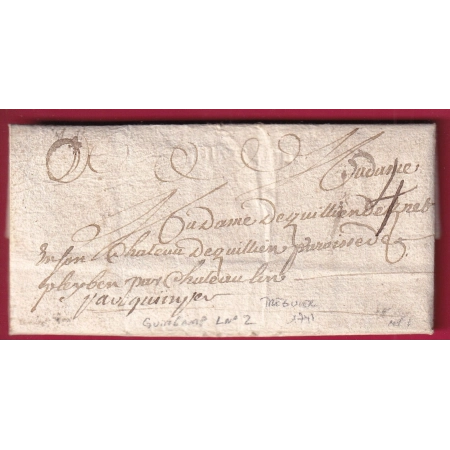 A
Madame
4
Madame De quillien de
En son Chateau Dequillien paroisse de
pleyben par Chateau lin
par quimper
GUINGAMP LN° 2
TREGUIER
1741